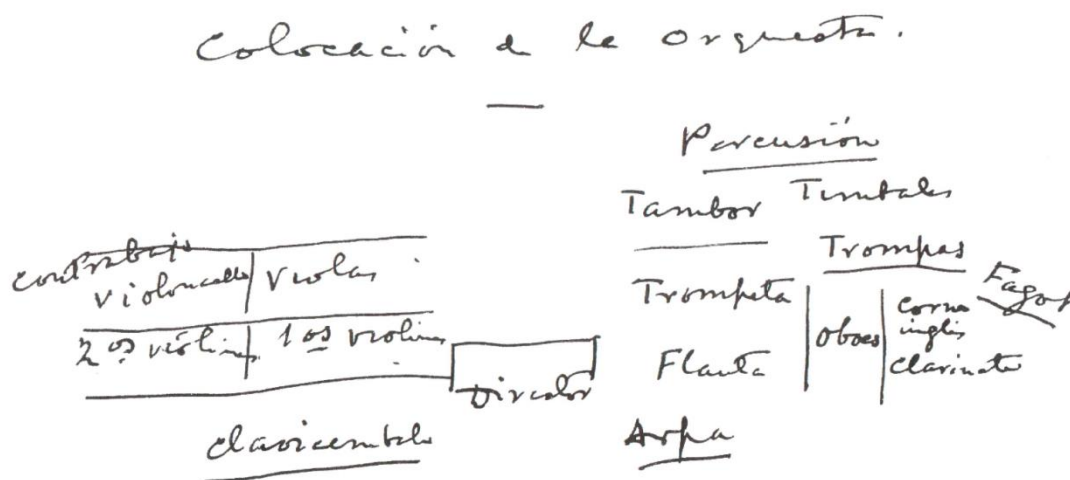 Colocación de la orquesta.
Percusión
Tambor Timbales
Contrabajo
Violoncello Violas
Trompas
Trompeta
Fagot
2os violines 1os violines
oboes
Corno
inglés
Flauta
Clarinete
Director
Clavicembalo
Arpa